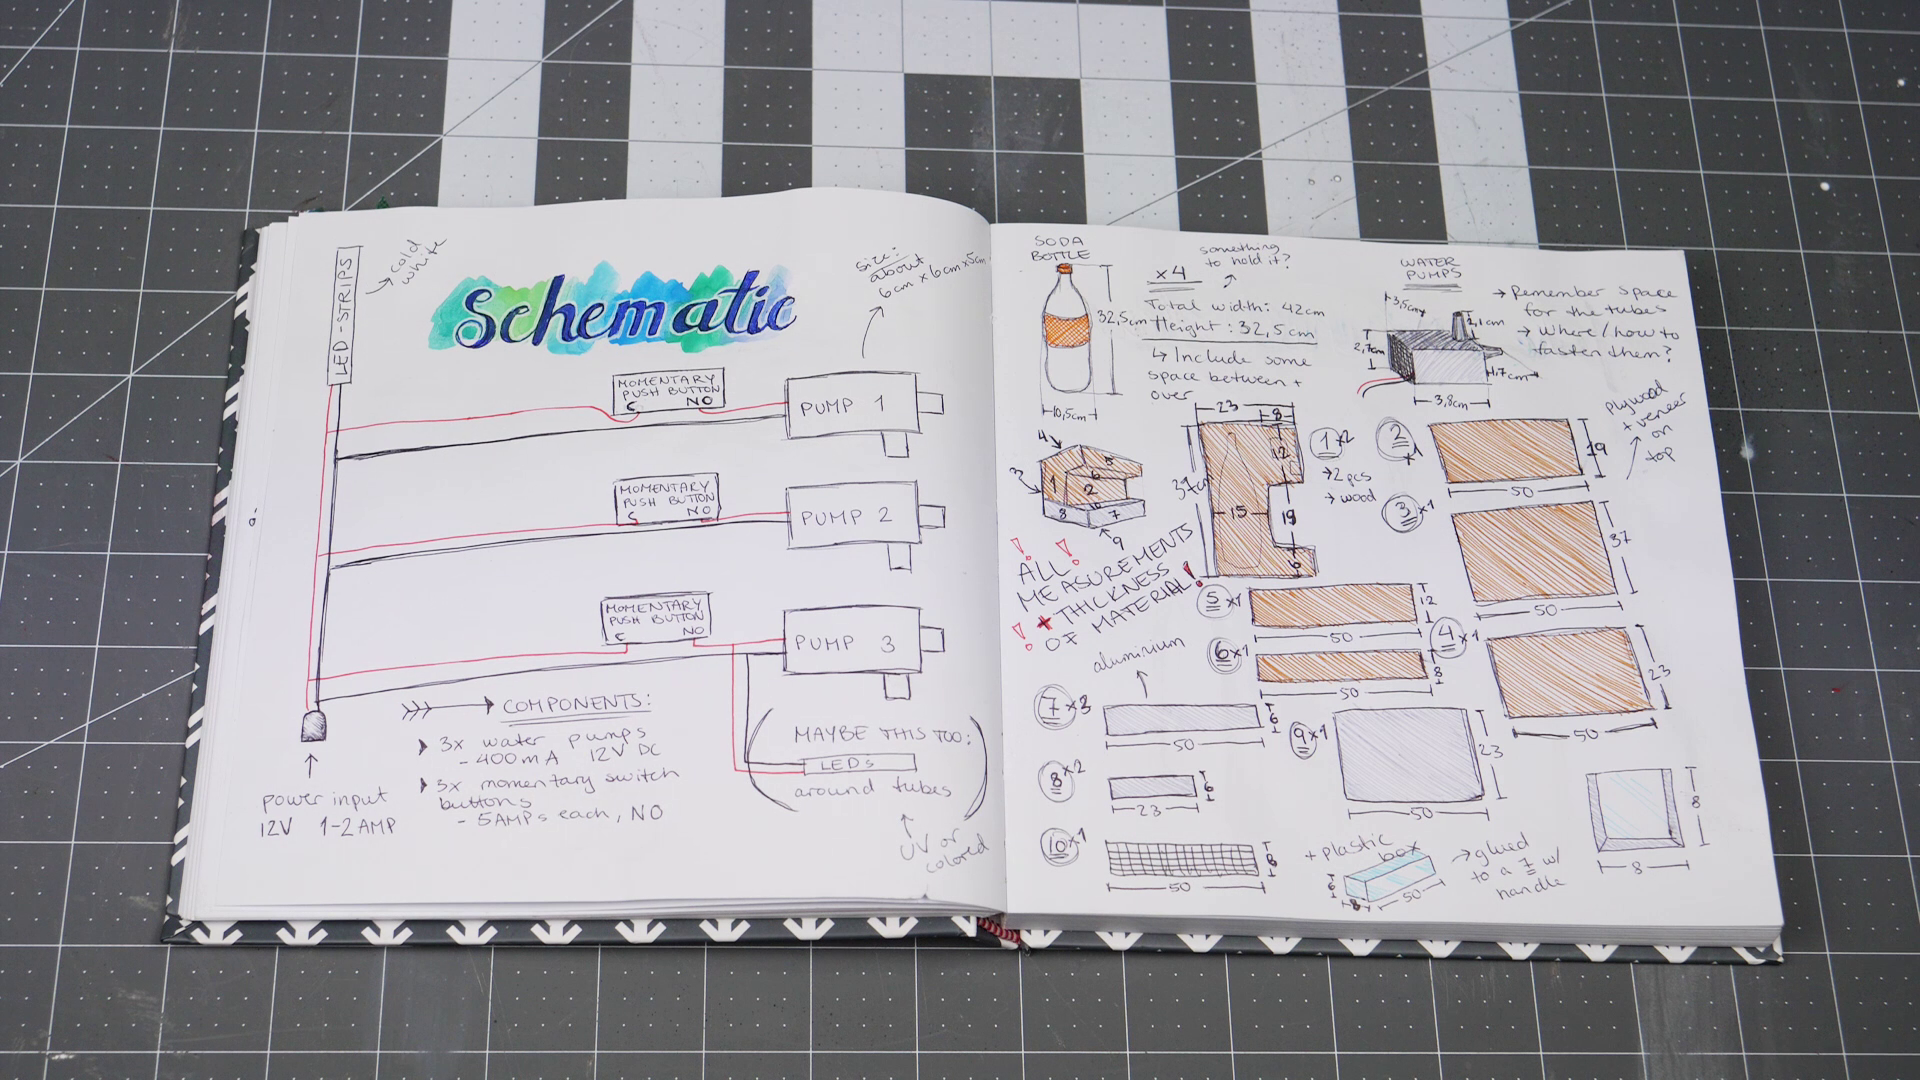 LED-STRIPS
cold
white
Schematic
size:
about
6cm x 6cm x 5cm
MOMENTARY
PUSH BUTTON
C NO
PUMP 1
MOMENTARY
PUSH BUTTON
C NO
PUMP 2
MOMENTARY
PUSH BUTTON
C NO
PUMP 3
COMPONENTS:
3x water pumps
- 400mA 12V DC
3x momentary switch
buttons
- 5AMPs each, NO
power input
12V 1-2 AMP
(MAYBE THIS TOO:
LEDs
around tubes)
UV or
colored
SODA
BOTTLE
32,5cm
10,5cm
x4
something
to hold it?
Total width: 42cm
Height: 32,5cm
↳ Include some
space between +
over
WATER
PUMPS
3,5cm
2,1cm
2,7cm
1,7cm
3,8cm
→ Remember space
for the tubes
→ Where/how to
fasten them?
plywood
+ veneer
on
top
4
3
5
6
1
2
8
7
9
23
8
12
37cm
15
19
6
1 x2
→ 2 pcs
→ wood
2 x1
19
50
3 x1
37
50
! ALL !
MEASUREMENTS
! + THICKNESS
OF MATERIAL!
5 x1
12
50
4 x1
23
50
6 x1
8
50
aluminium
7 x3
6
50
9 x1
23
50
8 x2
6
23
10 x1
8
50
+ plastic
box
6
8
50
→ glued
to a 7 w/
handle
8
8